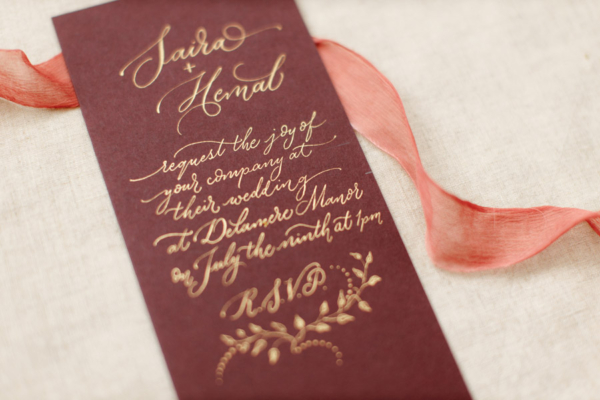 Saira
+
Hemal
request the joy of
your company at
their wedding
at Delamere Manor
on July the ninth at 1pm
R.S.V.P.